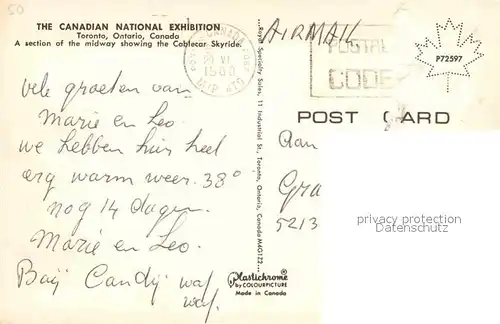 50
THE CANADIAN NATIONAL EXHIBITION
Toronto, Ontario, Canada
A section of the midway showing the Cablecar Skyride.
AIRMAIL
CANADA
VI
1500
POSTAL
CODE
P72597
POST CARD
vele groeten van
Marie en Leo.
we hebben hier heel
erg warm weer. 38°
nog 14 dagen.
Marie en Leo.
Baÿ Candÿ waf
waf.
...Royal Specialty Sales, 11 Industrial St., Toronto, Ontario, Canada M4G1Z2...
Aan
Gra
5213
protected by copyright
Datenschutz
Plastichrome®
by COLOURPICTURE
Made in Canada